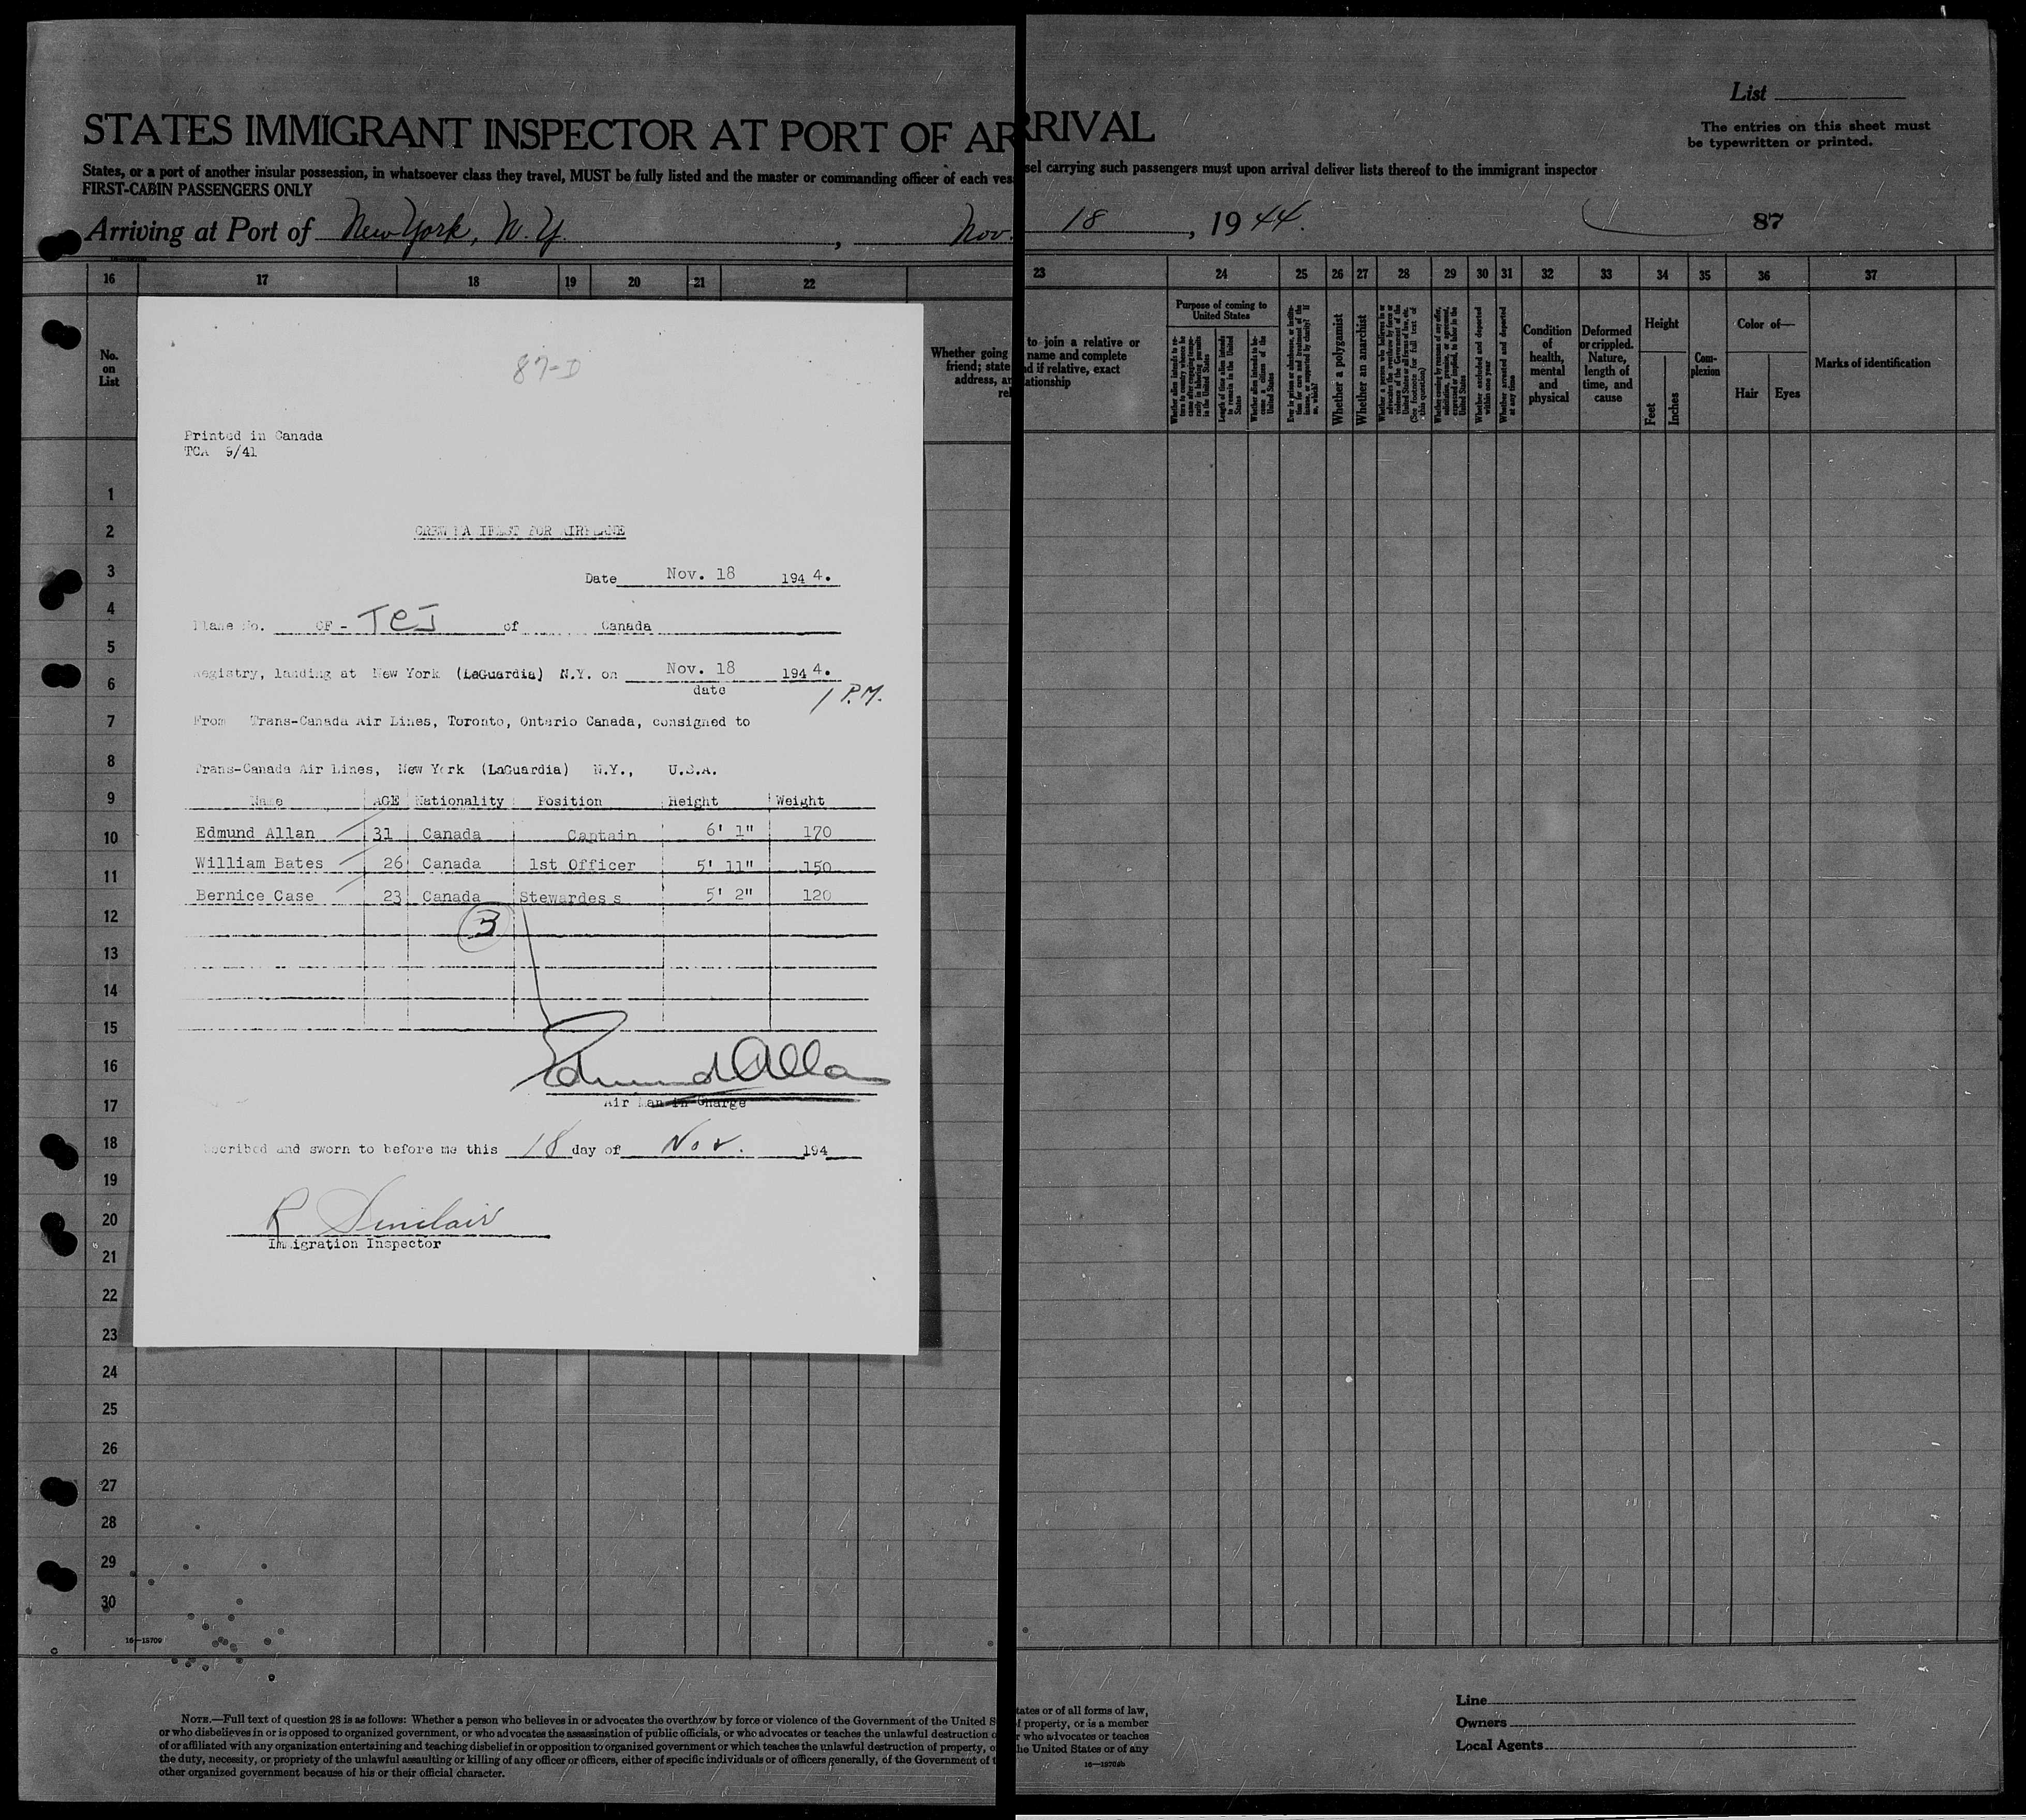 List
The entries on this sheet must
be typewritten or printed.
STATES IMMIGRANT INSPECTOR AT PORT OF ARRIVAL
States, or a port of another insular possession, in whatsoever class they travel, MUST be fully listed and the master or commanding officer of each vessel carrying such passengers must upon arrival deliver lists thereof to the immigrant inspector
FIRST-CABIN PASSENGERS ONLY
Arriving at Port of New York, N.Y. , Nov. 18 , 1944. 87
16 17 18 19 20 21 22 23 24 25 26 27 28 29 30 31 32 33 34 35 36 37
No.
on
List
Whether going to join a relative or
friend; state name and complete
address, and if relative, exact
relationship
Purpose of coming to
United States
Whether a polygamist
Whether an anarchist
Whether excluded and deported
within one year
Whether arrested and deported
at any time
Condition
of
health,
mental
and
physical
Deformed
or crippled.
Nature,
length of
time, and
cause
Height
Feet
Inches
Com-
plexion
Color of—
Hair
Eyes
Marks of identification
87-D
Printed in Canada
TCA 9/41
CREW MA IFEST FOR AIRPLANE
Date Nov. 18 1944.
Plane No. CF- TCJ of Canada
Registry, landing at New York (LaGuardia) N.Y. on Nov. 18 1944.
date
1 P.M.
From Trans-Canada Air Lines, Toronto, Ontario Canada, consigned to
Trans-Canada Air Lines, New York (LaGuardia) N.Y., U.S.A.
Name AGE Nationality Position Height Weight
Edmund Allan 31 Canada Captain 6' 1" 170
William Bates 26 Canada 1st Officer 5' 11" 150
Bernice Case 23 Canada Stewardess 5' 2" 120
3
Edmund Allan
Air Man in Charge
scribed and sworn to before me this 18 day of Nov. 194
R Sinclair
Immigration Inspector
1
2
3
4
5
6
7
8
9
10
11
12
13
14
15
16
17
18
19
20
21
22
23
24
25
26
27
28
29
30
16—13709
NOTE.—Full text of question 28 is as follows: Whether a person who believes in or advocates the overthrow by force or violence of the Government of the United States or of all forms of law,
or who disbelieves in or is opposed to organized government, or who advocates the assassination of public officials, or who advocates or teaches the unlawful destruction of property, or is a member
of or affiliated with any organization entertaining and teaching disbelief in or opposition to organized government or which teaches the unlawful destruction of property, or who advocates or teaches
the duty, necessity, or propriety of the unlawful assaulting or killing of any officer or officers, either of specific individuals or of officers generally, of the Government of the United States or of any
other organized government because of his or their official character.
Line
Owners
Local Agents